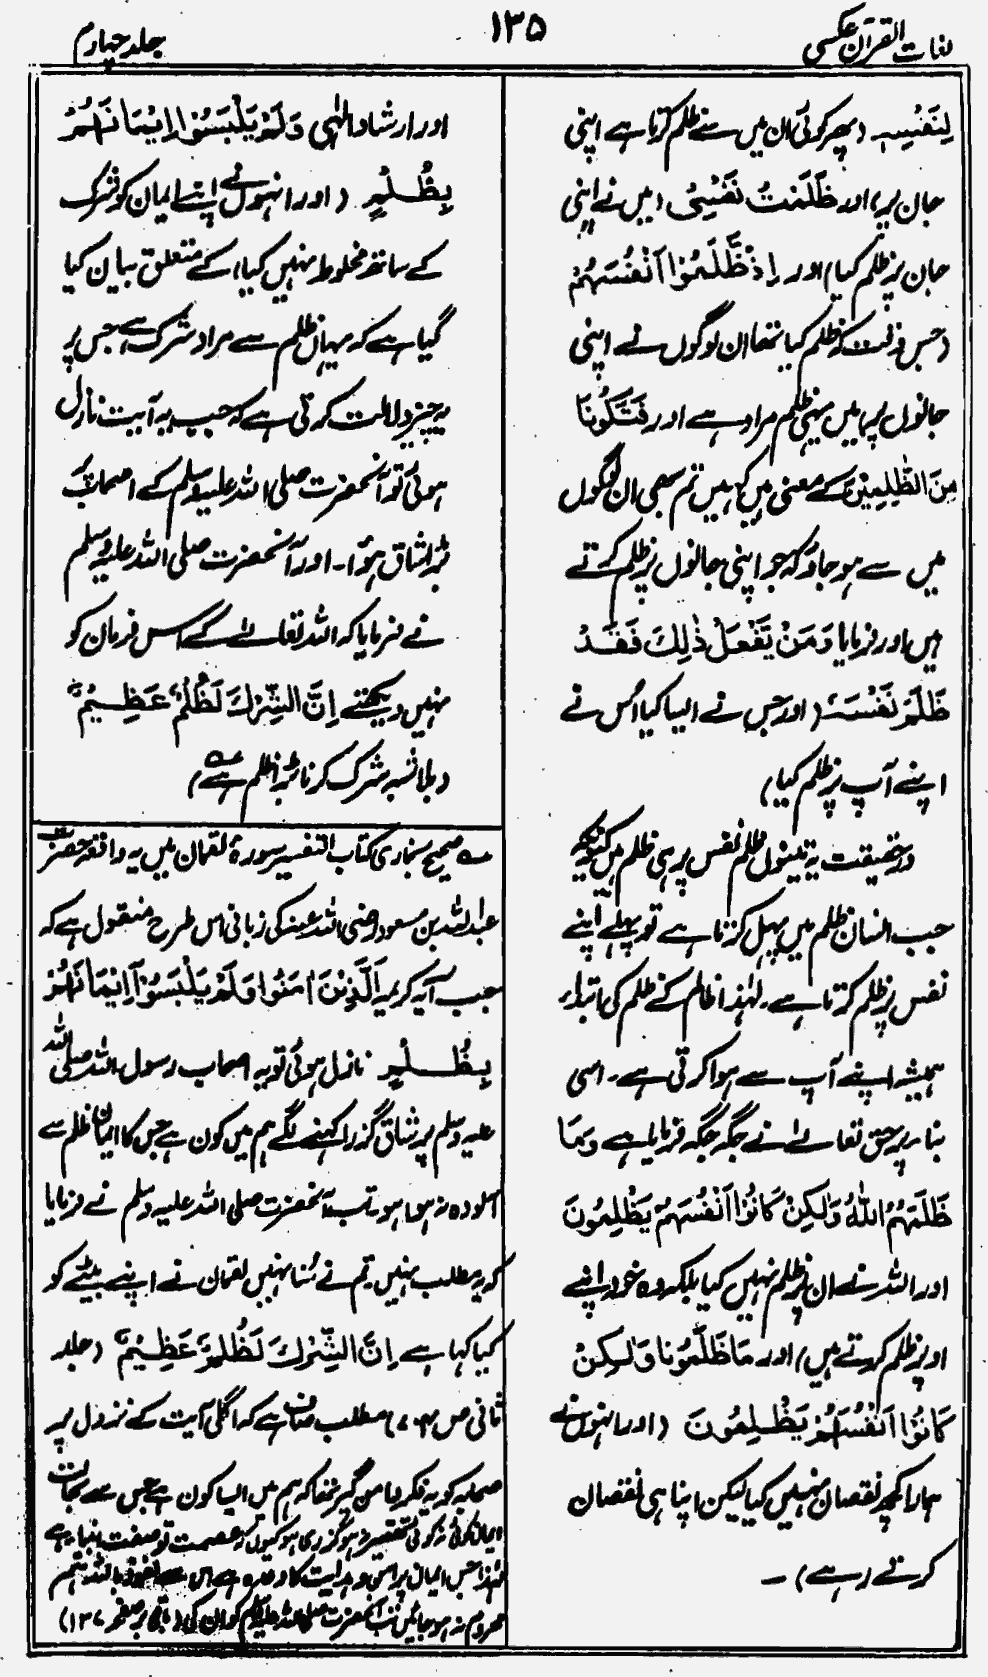 لغات القرآن عکسی
۱۳۵
جلد چہارم
لِنَفْسِہٖ (پھر کوئی ان میں سے ظلم کرتا ہے اپنی
جان پر) اور ظَلَمْتُ نَفْسِیْ (میں نے اپنی
جان پر ظلم کیا) اور اِذْ ظَّلَمُوْٓا اَنْفُسَہُمْ
(جس وقت کہ ظلم کیا تھا ان لوگوں نے اپنی
جانوں پر) میں یہی ظلم مراد ہے اور فَتَکُوْنَا
مِنَ الظّٰلِمِیْنَ کے معنی ہیں کہیں تم بھی ان لوگوں
میں سے ہو جاؤ کہ جو اپنی جانوں پر ظلم کرتے
ہیں اور فرمایا وَمَنْ یَّفْعَلْ ذٰلِکَ فَقَدْ
ظَلَمَ نَفْسَہٗ (اور جس نے ایسا کیا اُس نے
اپنے آپ پر ظلم کیا)
درحقیقت یہ تینوں ظلم نفس پر ہی ظلم ہیں کیونکہ
جب انسان ظلم میں پہل کرتا ہے تو پہلے اپنے
نفس پر ظلم کرتا ہے۔ لہٰذا ظالم کے ظلم کی ابتداء
ہمیشہ اپنے آپ سے ہوا کرتی ہے۔ اسی
بناء پر حق تعالےٰ نے جگہ جگہ فرمایا ہے وَمَا
ظَلَمَہُمُ اللّٰہُ وَلٰکِنْ کَانُوْٓا اَنْفُسَہُمْ یَظْلِمُوْنَ
اور اللہ نے ان پر ظلم نہیں کیا بلکہ وہ خود اپنے
اوپر ظلم کرتے ہیں) اور مَا ظَلَمُوْنَا وَلٰکِنْ
کَانُوْٓا اَنْفُسَہُمْ یَظْلِمُوْنَ (اور انہوں نے
ہمارا کچھ نقصان نہیں کیا لیکن اپنا ہی نقصان
کرتے رہے) ـ
اور ارشاد الٰہی وَلَمْ یَلْبِسُوْٓا اِیْمَانَہُمْ
بِظُلْمٍ (اور انہوں نے اپنے ایمان کو شرک
کے ساتھ مخلوط نہیں کیا) کے متعلق بیان کیا
گیا ہے کہ یہاں ظلم سے مراد شرک ہے جس پر
یہ چیز دلالت کرتی ہے کہ جب یہ آیت نازل
ہوئی تو آنحضرت صلی اللہ علیہ وسلم کے اصحاب پر
بڑا شاق ہؤا۔ اور آنحضرت صلی اللہ علیہ وسلم
نے فرمایا کہ اللہ تعالےٰ کے اس فرمان کو
نہیں دیکھتے اِنَّ الشِّرْکَ لَظُلْمٌ عَظِیْمٌ
(بلاشبہ شرک کرنا بڑا ظلم ہے)
صحیح بخاری کتاب التفسیر سورۂ لقمان میں یہ واقعہ حضرت
عبداللہ بن مسعود رضی اللہ عنہ کی زبانی اس طرح منقول ہے کہ
جب آیہ کریمہ اَلَّذِیْنَ اٰمَنُوْا وَلَمْ یَلْبِسُوْٓا اِیْمَانَہُمْ
بِظُلْمٍ نازل ہوئی تو یہ اصحاب رسول اللہ صلی اللہ
علیہ وسلم پر شاق گزرا کہنے لگے ہم میں کون ہے جس کا ایمان ظلم سے
آلودہ نہ ہوا ہو تب آنحضرت صلی اللہ علیہ وسلم نے فرمایا
کہ یہ مطلب نہیں تم نے سُنا نہیں لقمان نے اپنے بیٹے کو
کیا کہا ہے اِنَّ الشِّرْکَ لَظُلْمٌ عَظِیْمٌ (جلد
ثانی ص ۷۰۴) مطلب صاف ہے کہ اگلی آیت کے نزول پر
صحابہ کو یہ فکر دامن گیر تھا کہ ہم میں ایسا کون ہے جس سے بحالت
ایمان کوئی نہ کوئی تقصیر نہ ہو گزری ہو کیونکہ عصمت تو صفت انبیاء ہے
لہٰذا جس ایمان پر امن و ہدایت کا وعدہ ہے اس سے نعوذ باللہ ہم
محروم نہ ہو جائیں تب آنحضرت صلی اللہ علیہ وسلم کو ان کی (باقی بر صفحہ ۱۳۷)